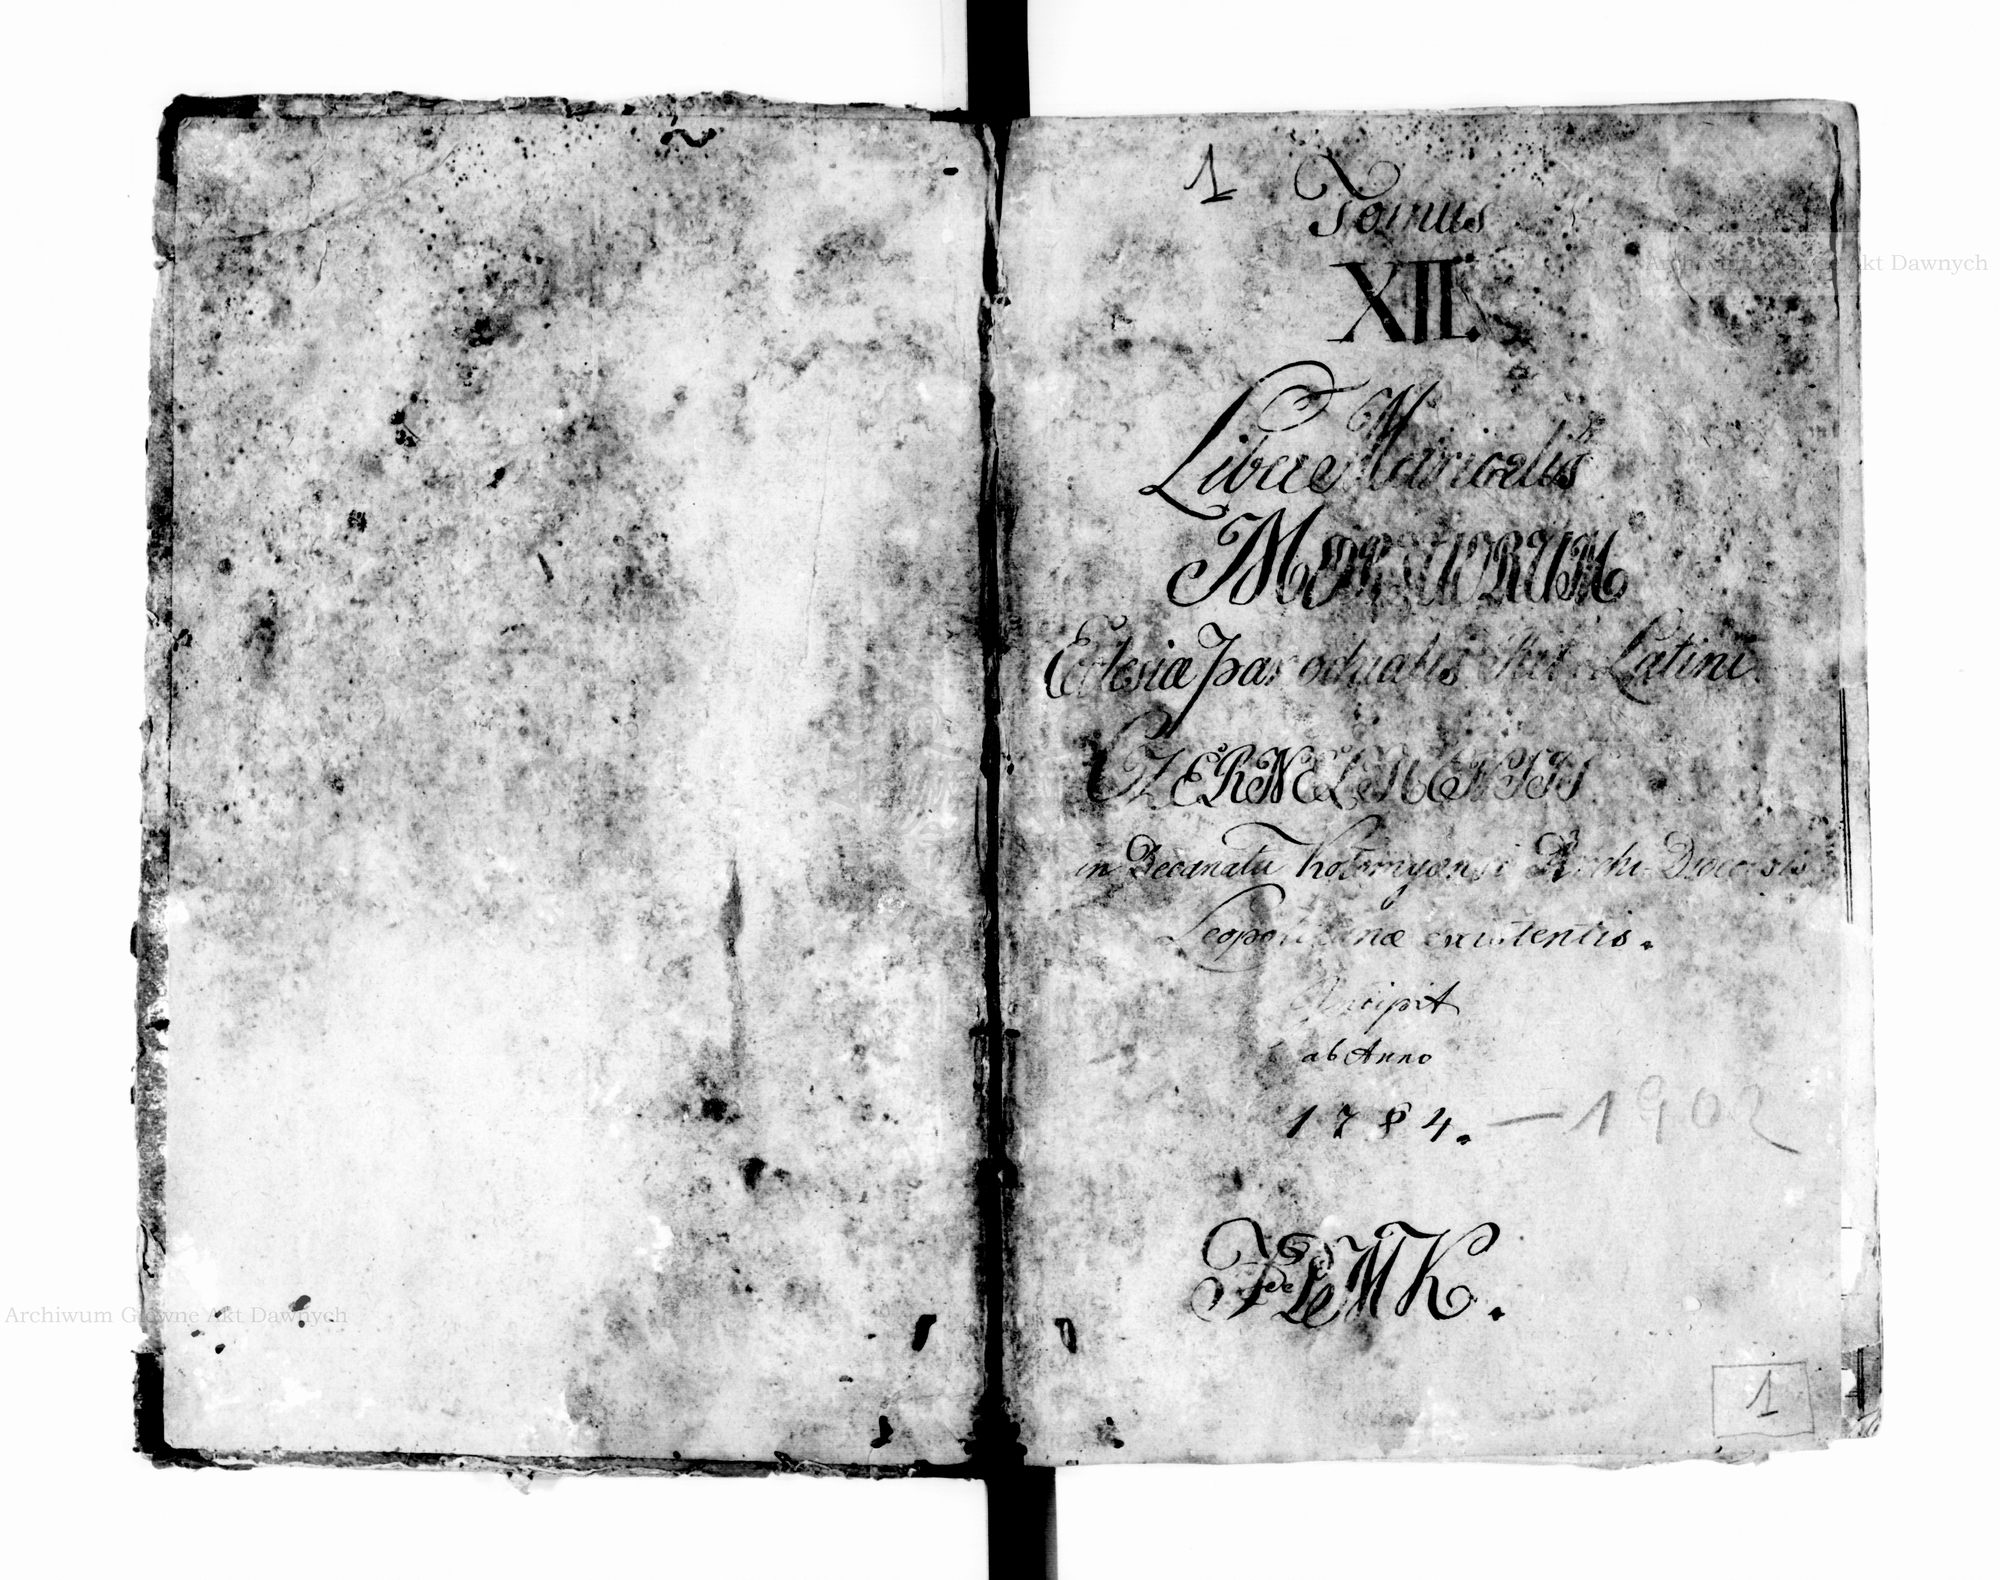 1 Tomus
XII.
Liber
MORTUORUM
Eclesiæ parochialis Rit: Latini
CZERNELICENSIS
in Decanatu Kolomyensi Archi-Diœcesis
Leopoliensis existentis.
Incipit
ab Anno
1784. — 1902
1
Archiwum Główne Akt Dawnych
Archiwum Główne Akt Dawnych